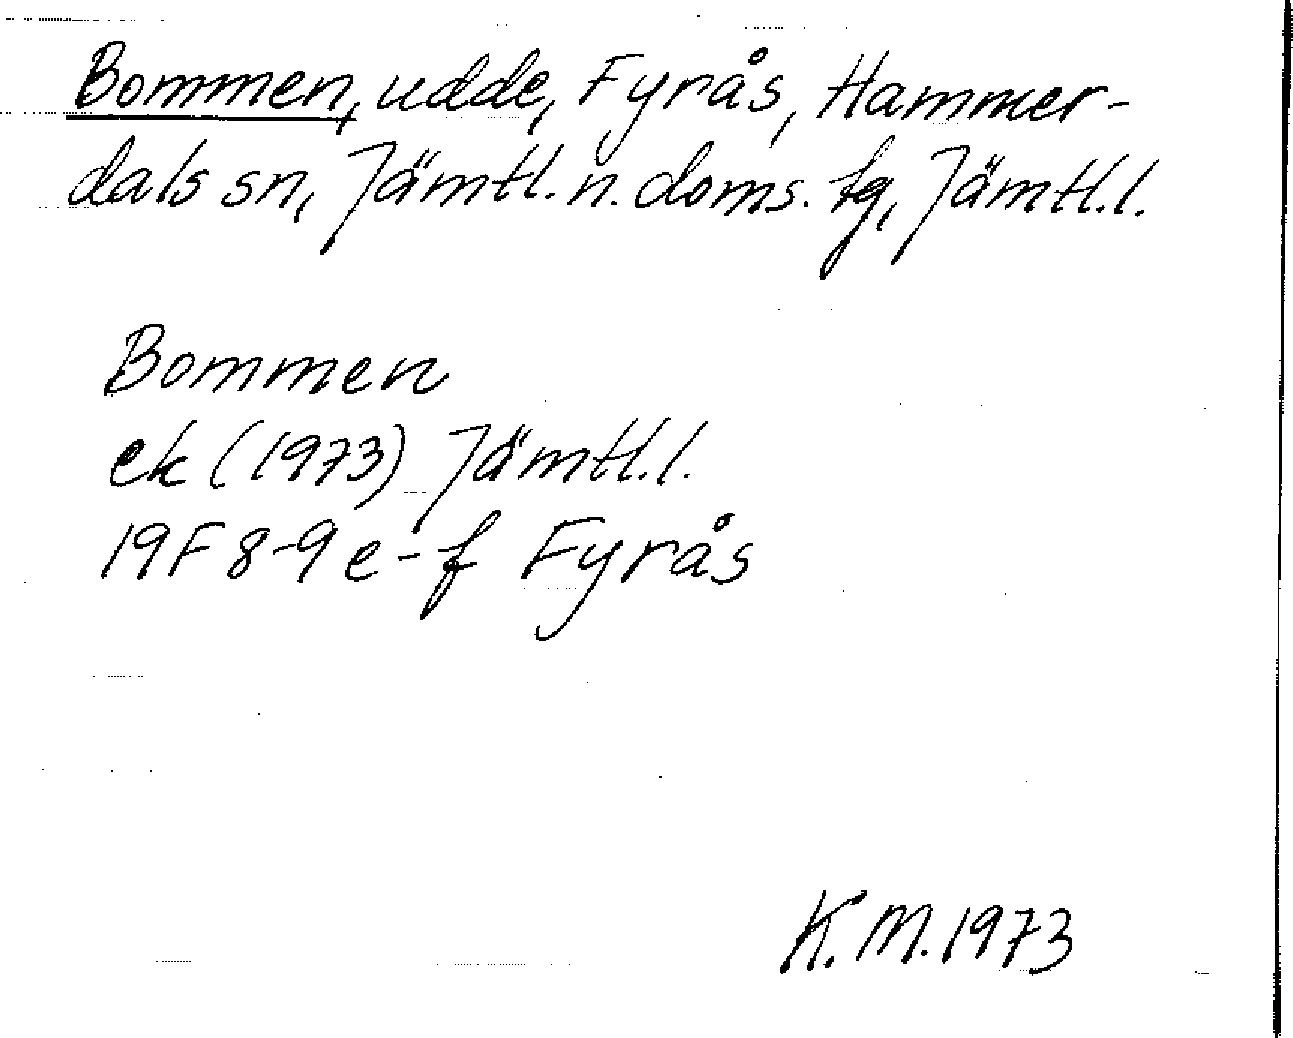 Bommen, udde, Fyrås, Hammer-
dals sn, Jämtl. n. doms. fg, Jämtl. l.
Bommen
ek (1973) Jämtl. l.
19F 8-9 e-f Fyrås
K. M. 1973